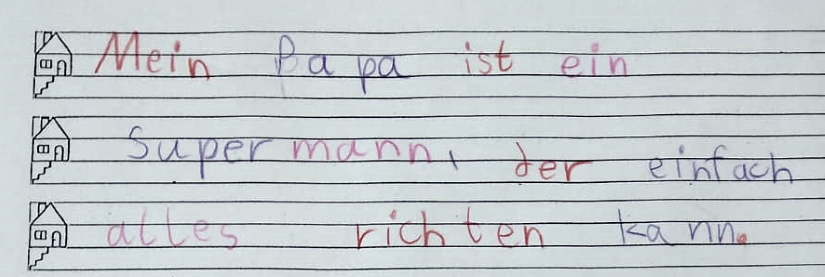 Mein Papa ist ein
Supermann, der einfach
alles richten kann.